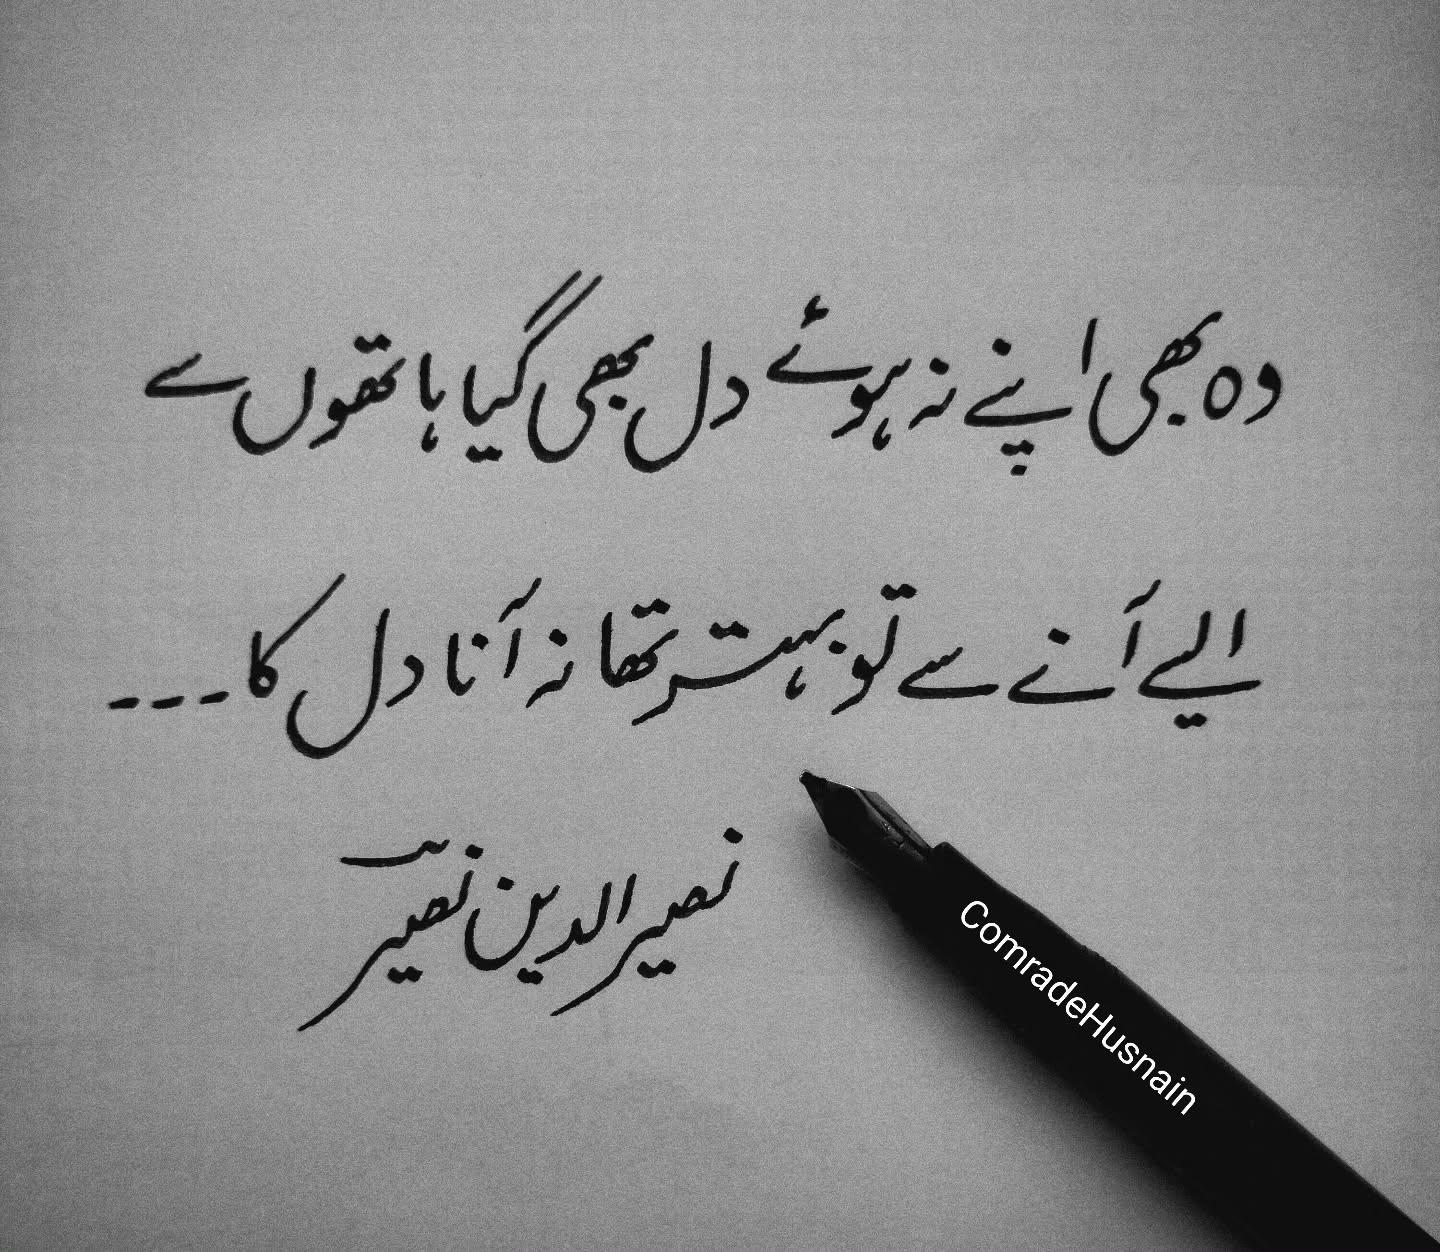 وہ بھی اپنے نہ ہوئے دل بھی گیا ہاتھوں سے
ایسے آنے سے تو بہتر تھا نہ آنا دل کا۔۔۔
نصیر الدین نصیرؔ
ComradeHusnain